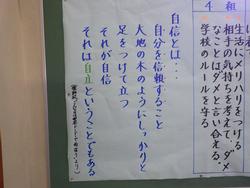 4 組
生活にメリハリをつける
相手の気持ちを考えて、ダメ
なことはダメと言い合える。
学校のルールを守る
自信とは・・・
自分を信頼すること
大地の木のようにしっかりと
足をつけて立つ
それが自信
それは自立ということでもある